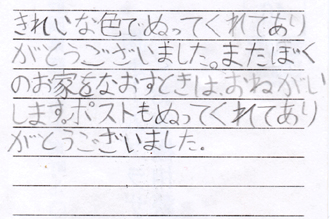 きれいな色でぬってくれてあり
がとうございました。またぼく
のお家をなおすときは、おねがい
します。ポストもぬってくれてあり
がとうございました。